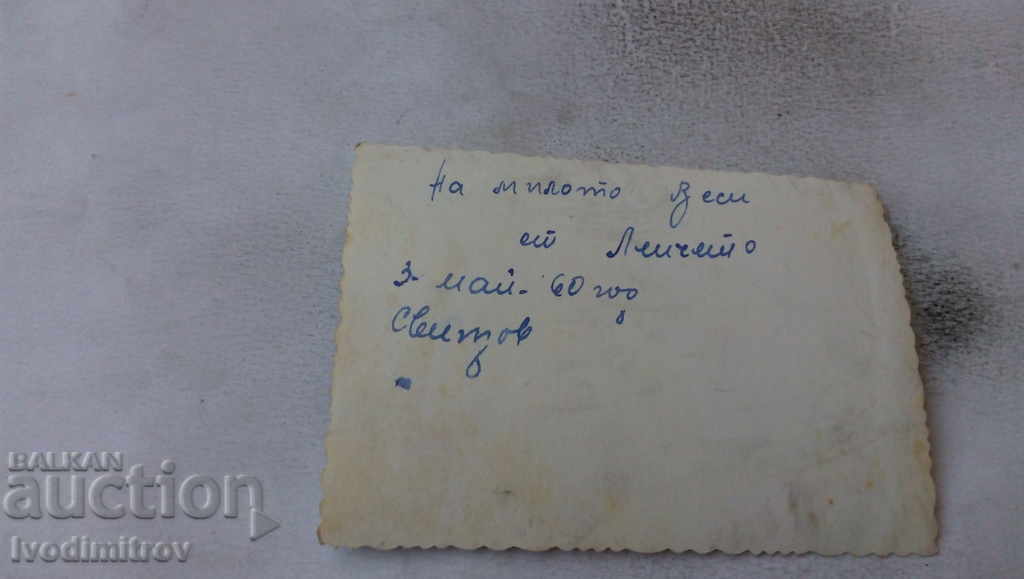 На милото Веси
от Ленчето
3- май- 60 год
Свищов
BALKAN
auction
Ivodimitrov